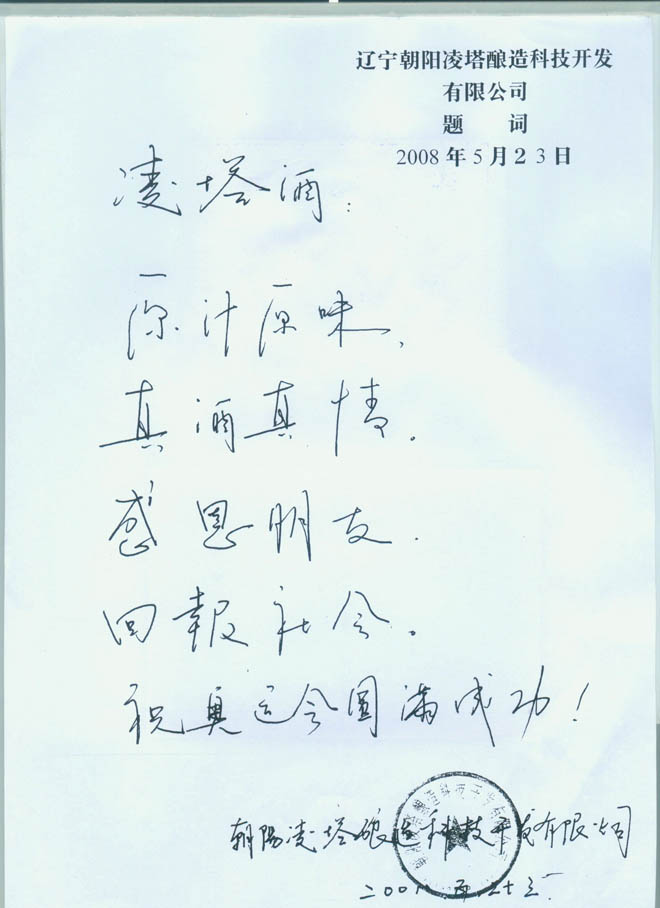 辽宁朝阳凌塔酿造科技开发
有限公司
题 词
2008年5月23日
凌塔酒:
原汁原味,
真酒真情。
感恩朋友.
回报社会。
祝奥运会圆满成功!
朝阳凌塔酿造科技开发有限公司